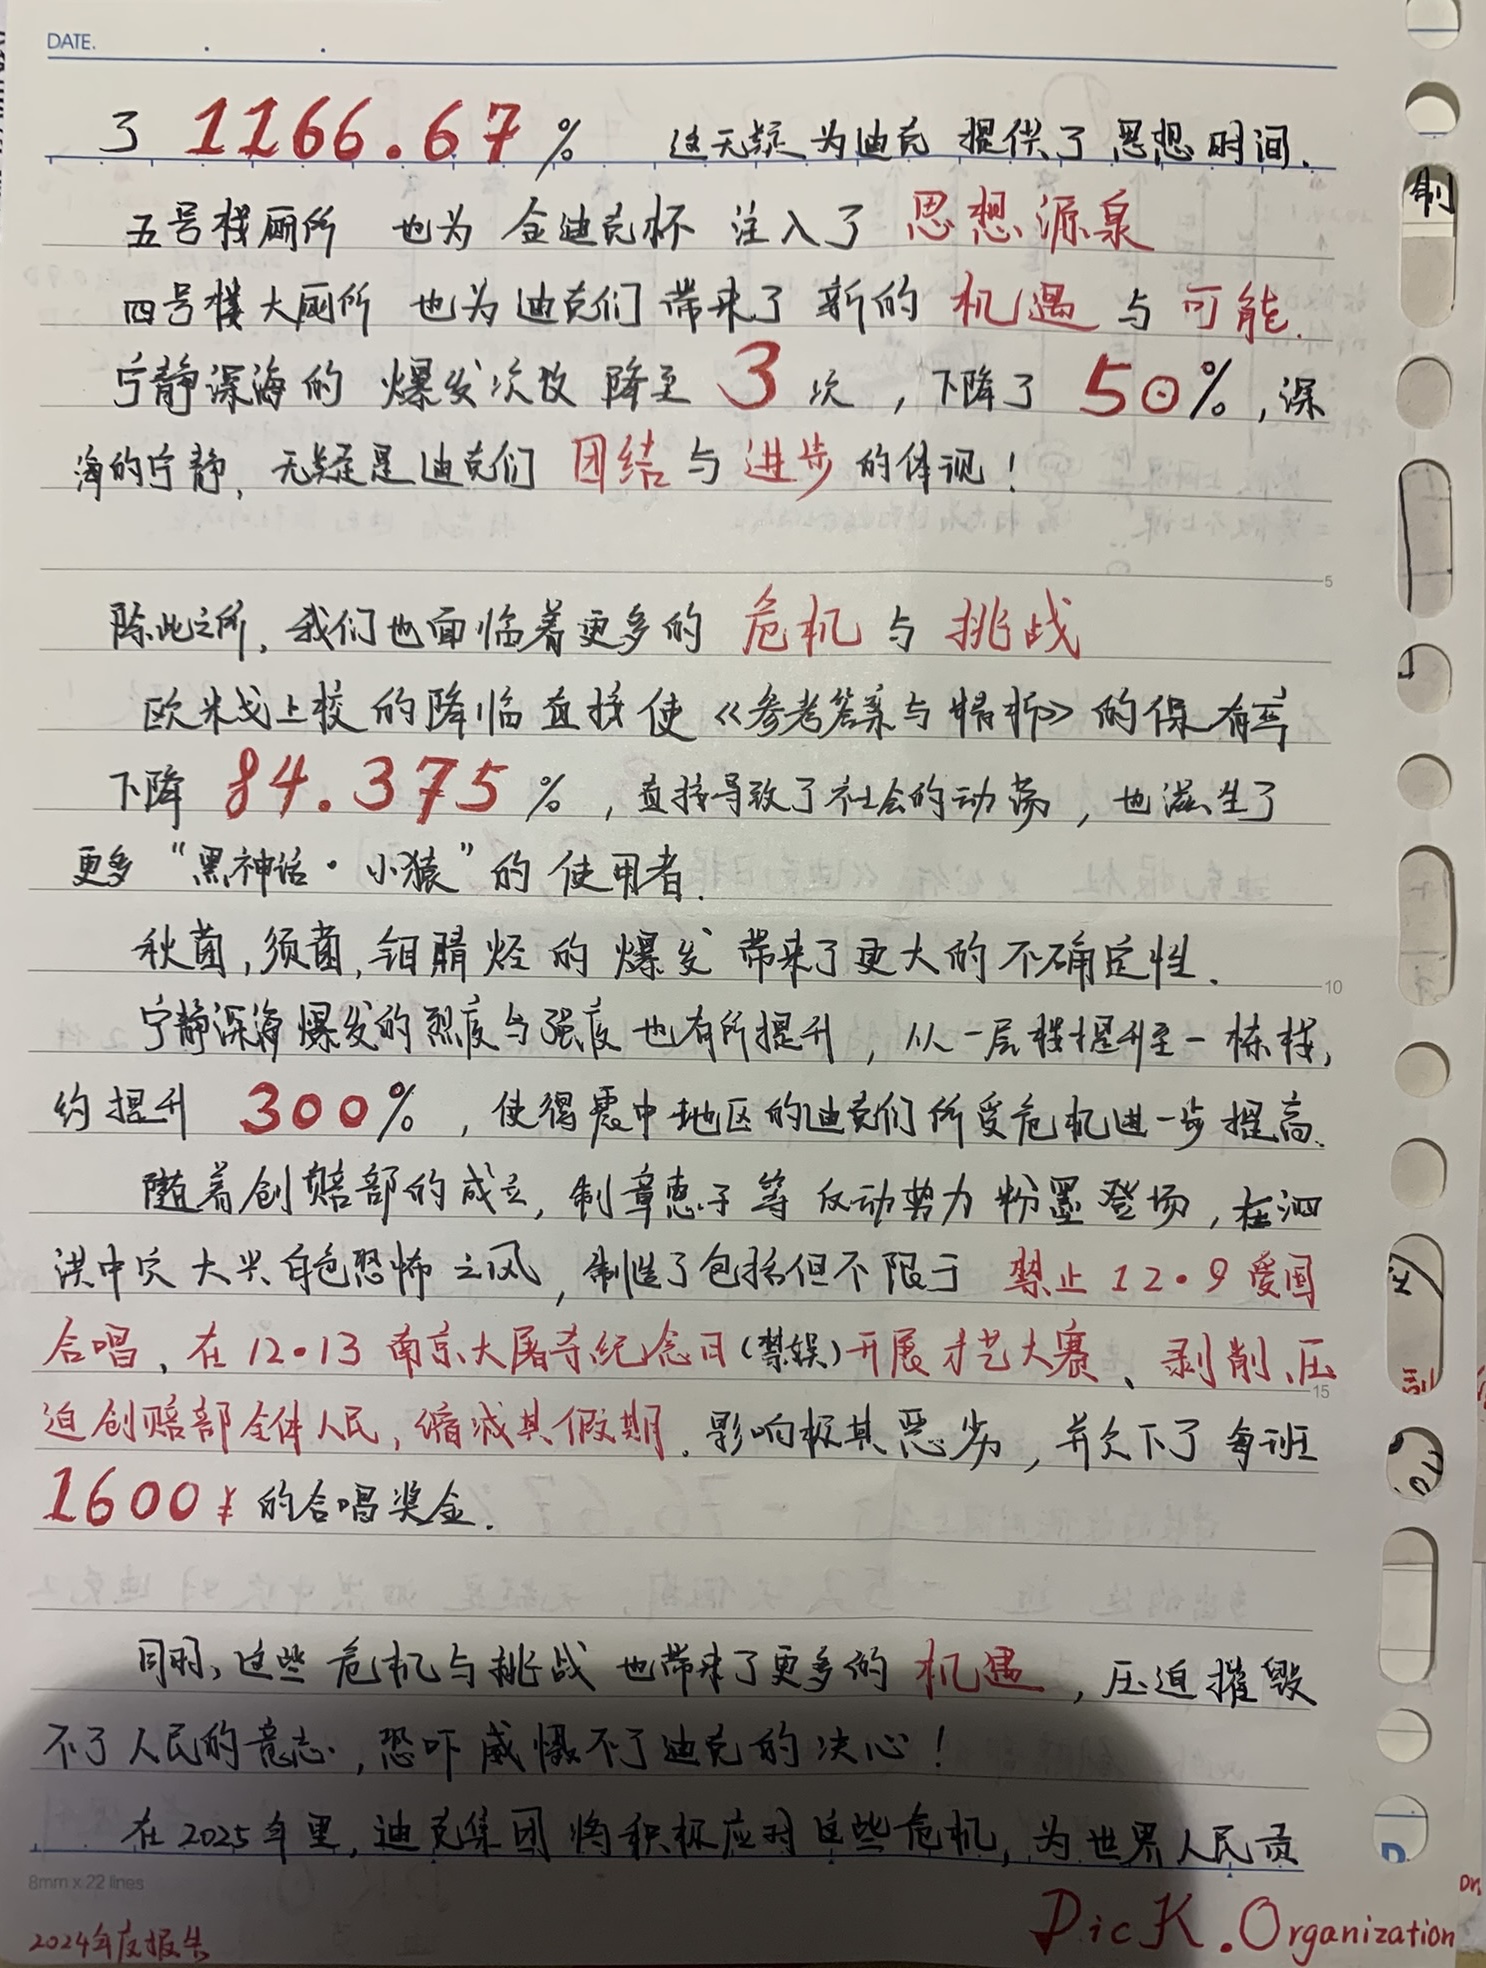 DATE.
了 1166.67% 这无疑为迪克提供了思想时间.
五号楼厕所 也为 金迪克杯 注入了 思想源泉
四号楼大厕所 也为迪克们带来了新的 机遇 与 可能.
宁静深海的 爆发次数 降至 3 次,下降了 50%,深
海的宁静,无疑是迪克们 团结与进步的体现!
5
除此之所,我们也面临着更多的 危机 与 挑战
欧米戈上校的降临直接使《参考答案与精析》的保有率
下降 84.375%,直接导致了社会的动荡,也滋生了
更多“黑神话·小猿”的使用者.
秋菌,须菌,钼腈烃的爆发带来了更大的不确定性.
10
宁静深海爆发的烈度与强度也有所提升,从一层楼提升至一栋楼,
约提升 300%,使得震中地区的迪克们所受危机进一步提高.
随着创赔部的成立,制章惠子等反动势力粉墨登场,在泗
洪中灾大兴白色恐怖之风,制造了包括但不限于 禁止12·9爱国
合唱、在12·13南京大屠杀纪念日(禁娱)开展才艺大赛、剥削、压
15
迫创赔部全体人民,缩减其假期.影响极其恶劣,并欠下了每班
1600¥的合唱奖金.
同时,这些危机与挑战也带来了更多的机遇,压迫摧毁
不了人民的意志,恐吓威慑不了迪克的决心!
在2025年里,迪克集团将积极应对这些危机,为世界人民贡
8mm x 22 lines
2024年度报告
DicK.Organization
制